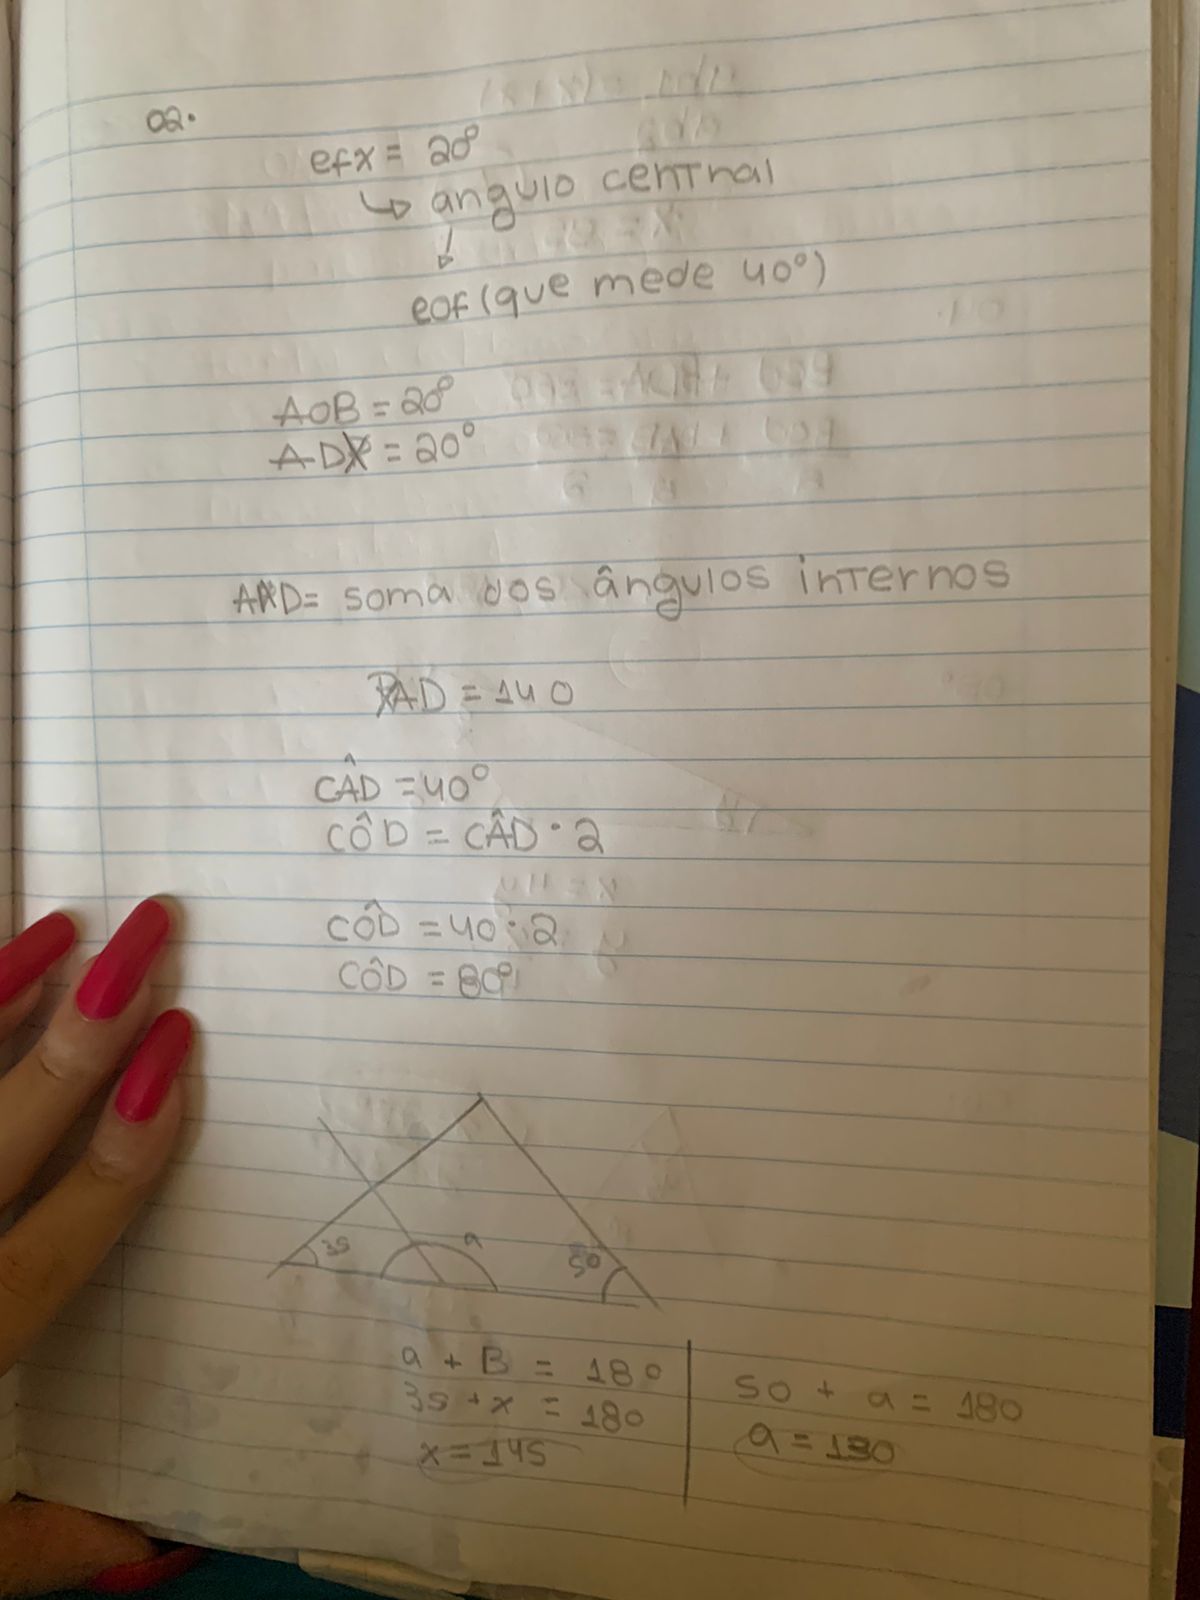 02.
efx = 20°
↳ angulo central
↓
eof (que mede 40°)
AOB = 20°
ADX = 20°
AXD = soma dos ângulos internos
XAD = 140
CÂD = 40°
CÔD = CÂD · 2
CÔD = 40 · 2
CÔD = 80°
35 a 50
a + B = 180
35 + x = 180
x = 145
50 + a = 180
a = 130